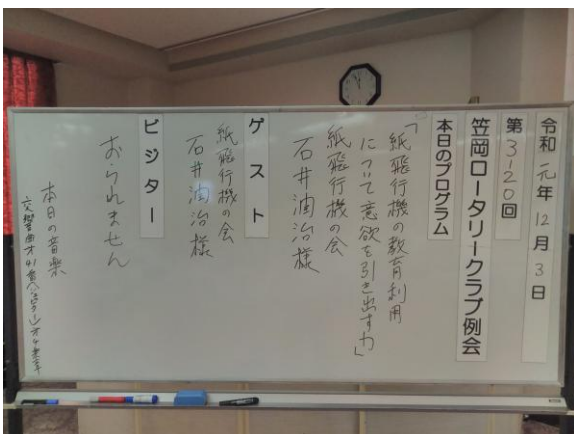 令和元年12月3日
第3120回
笠岡ロータリークラブ例会
本日のプログラム
「紙飛行機の教育利用
について意欲を引き出す力」
紙飛行機の会
石井潤治様
ゲスト
紙飛行機の会
石井潤治様
ビジター
おられません
本日の音楽
交響曲才41番